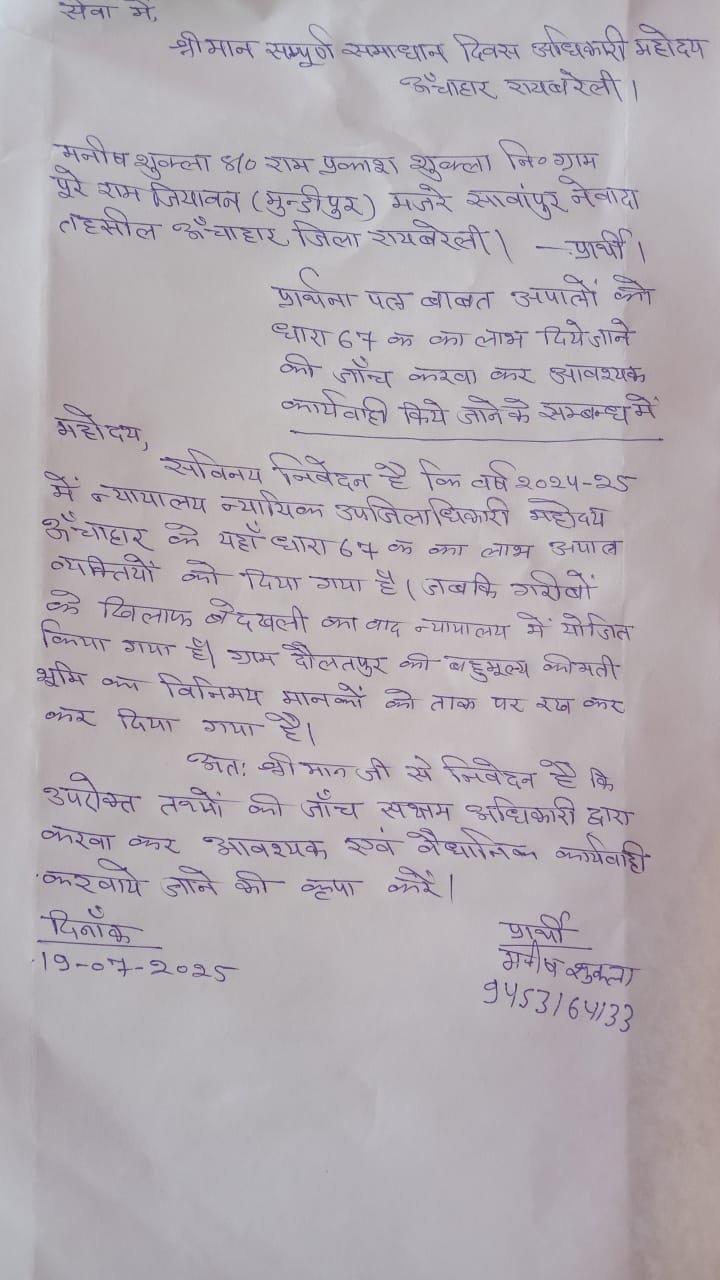 सेवा में,
श्रीमान सम्पूर्ण समाधान दिवस अधिकारी महोदय
ऊँचाहार रायबरेली।
मनीष शुक्ला S/o राम प्रकाश शुक्ला नि० ग्राम
पूरे राम जियावन (मुन्डीपुर) मजरे सावांपुर नेवादा
तहसील ऊँचाहार जिला रायबरेली। —प्रार्थी।
प्रार्थना पत्र बाबत अपात्रों को
धारा 67 क का लाभ दिये जाने
की जाँच करवा कर आवश्यक
कार्यवाही किये जाने के सम्बन्ध में
महोदय,
सविनय निवेदन है कि वर्ष 2024-25
में न्यायालय न्यायिक उपजिलाधिकारी महोदय
ऊँचाहार के यहाँ धारा 67 क का लाभ अपात्र
व्यक्तियों को दिया गया है। जबकि गरीबों
के खिलाफ बेदखली का वाद न्यायालय में योजित
किया गया है। ग्राम दौलतपुर की बहुमूल्य कीमती
भूमि का विनिमय मानकों को ताक पर रख कर
कर दिया गया है।
अतः श्रीमान जी से निवेदन है कि
उपरोक्त तथ्यों की जाँच सक्षम अधिकारी द्वारा
करवा कर आवश्यक एवं वैधानिक कार्यवाही
करवाये जाने की कृपा करें।
दिनाँक
19-07-2025
प्रार्थी
मनीष शुक्ला
9453164133